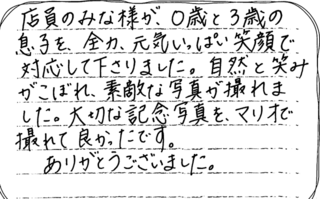 店員のみな様が、0歳と3歳の
息子を、全力、元気いっぱい笑顔で
対応して下さりました。自然と笑み
がこぼれ、素敵な写真が撮れま
した。大切な記念写真を、マリオで
撮れて良かったです。
ありがとうございました。